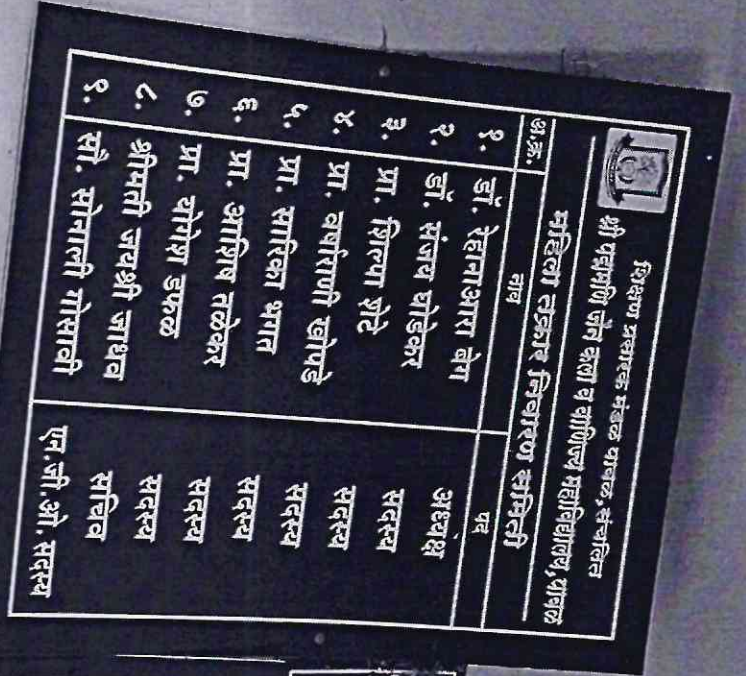 शिक्षण प्रसारक मंडळ पाबळ, संचलित
श्री पद्ममणि जैन कला व वाणिज्य महाविद्यालय, पाबळ
महिला तक्रार निवारण समिती
अ.क्र. नाव पद
१. डॉ. रेहानआरा बेग अध्यक्ष
२. डॉ. संजय घोडेकर सदस्य
३. प्रा. शिल्पा शेटे सदस्य
४. प्रा. वर्षाराणी खोपडे सदस्य
५. प्रा. सारिका भगत सदस्य
६. प्रा. आशिष तळेकर सदस्य
७. प्रा. योगेश डफळ सदस्य
८. श्रीमती जयश्री जाधव सचिव
९. सौ. सोनाली गोसावी एन.जी.ओ. सदस्य